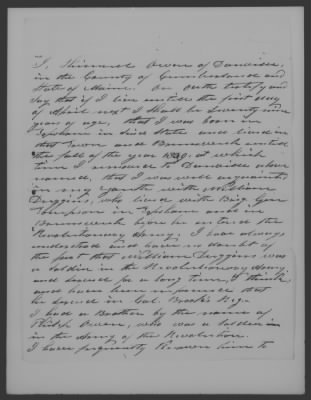 I, Owen of
in the County of Cumberland and
State of Maine. On Oath testify and
say that if I live until the first day
of April next I shall be Seventy nine
years of age, that I was born in
Topsham in said State and lived in
that Town and Brunswick until
the fall of the year at which
time I moved to above
named, that I was well acquainted
in my youth with William
Duggins, who lived with Brig. Gen
Thompson in Topsham and in
Brunswick before he entered the
Revolutionary Army. I have always
understood and have no doubt of
the fact that William Duggins was
a Soldier in the Revolutionary Army
and served for a long time, I think
and have been informed that
he served in Col. Brooks Reg.
I had a Brother by the name of
Philip Owen, who was a Soldier in
in the Army of the Revolution.
I have frequently him to